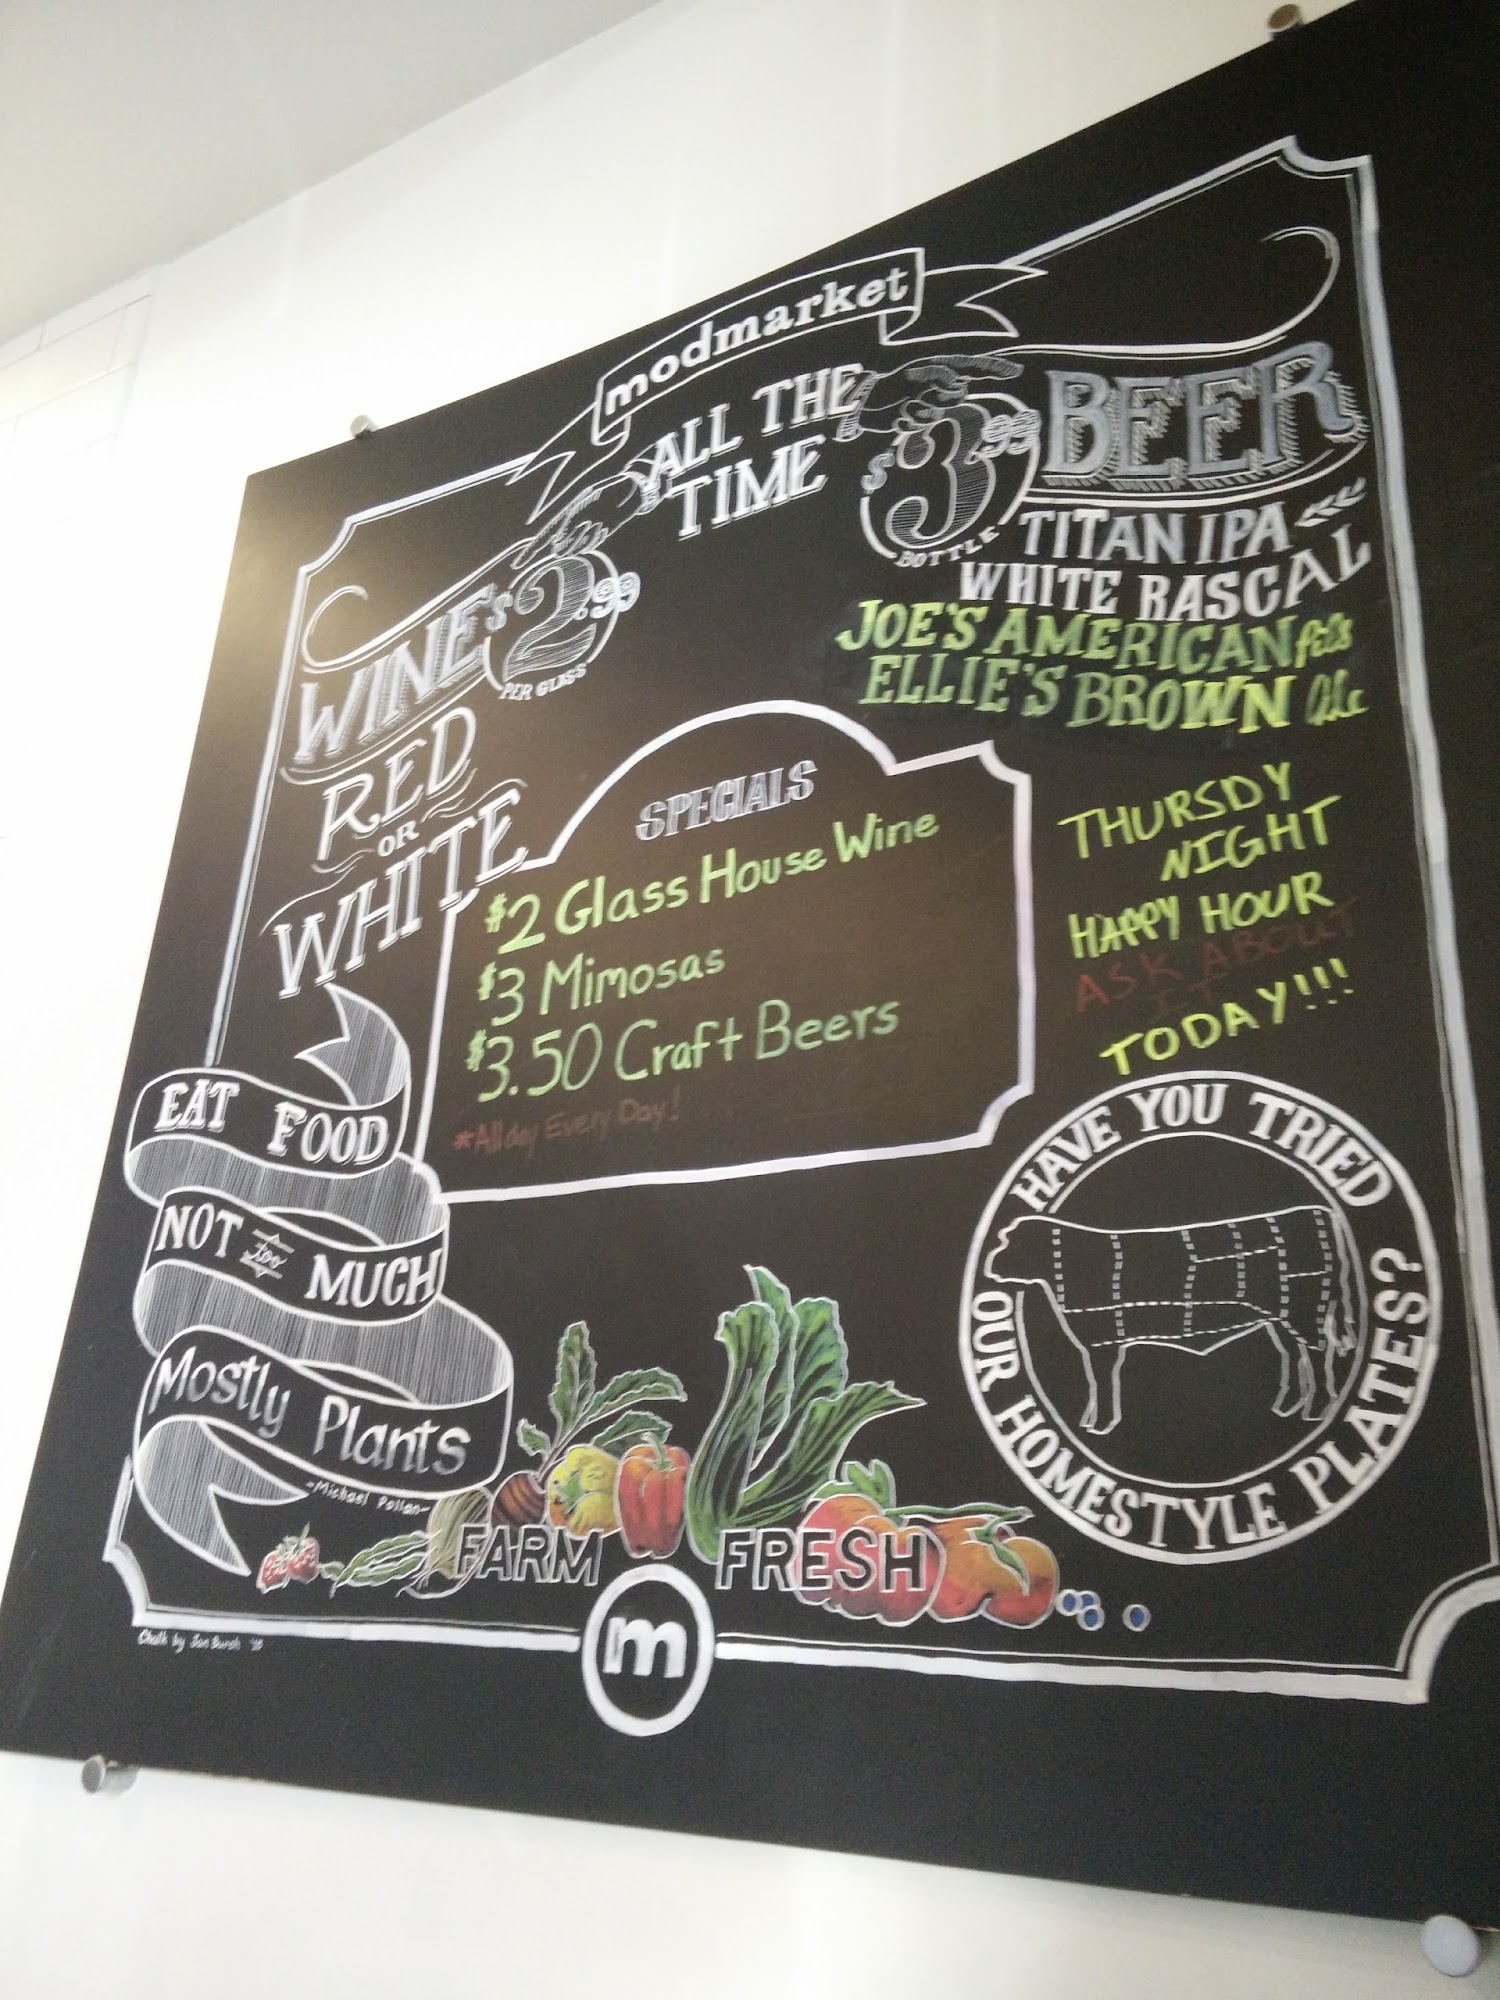 modmarket
ALL THE
TIME
WINE $2.99
PER GLASS
RED
OR
WHITE
$3.99 BEER
BOTTLE
TITAN IPA
WHITE RASCAL
JOE'S AMERICAN Pils
ELLIE'S BROWN Ale
SPECIALS
$2 Glass House Wine
$3 Mimosas
$3.50 Craft Beers
*All day Every Day!
THURSDY
NIGHT
HAPPY HOUR
ASK ABOUT
IT
TODAY!!!
EAT FOOD
NOT too MUCH
Mostly Plants
-Michael Pollan-
HAVE YOU TRIED
OUR HOMESTYLE PLATES?
FARM FRESH
m
Chalk by